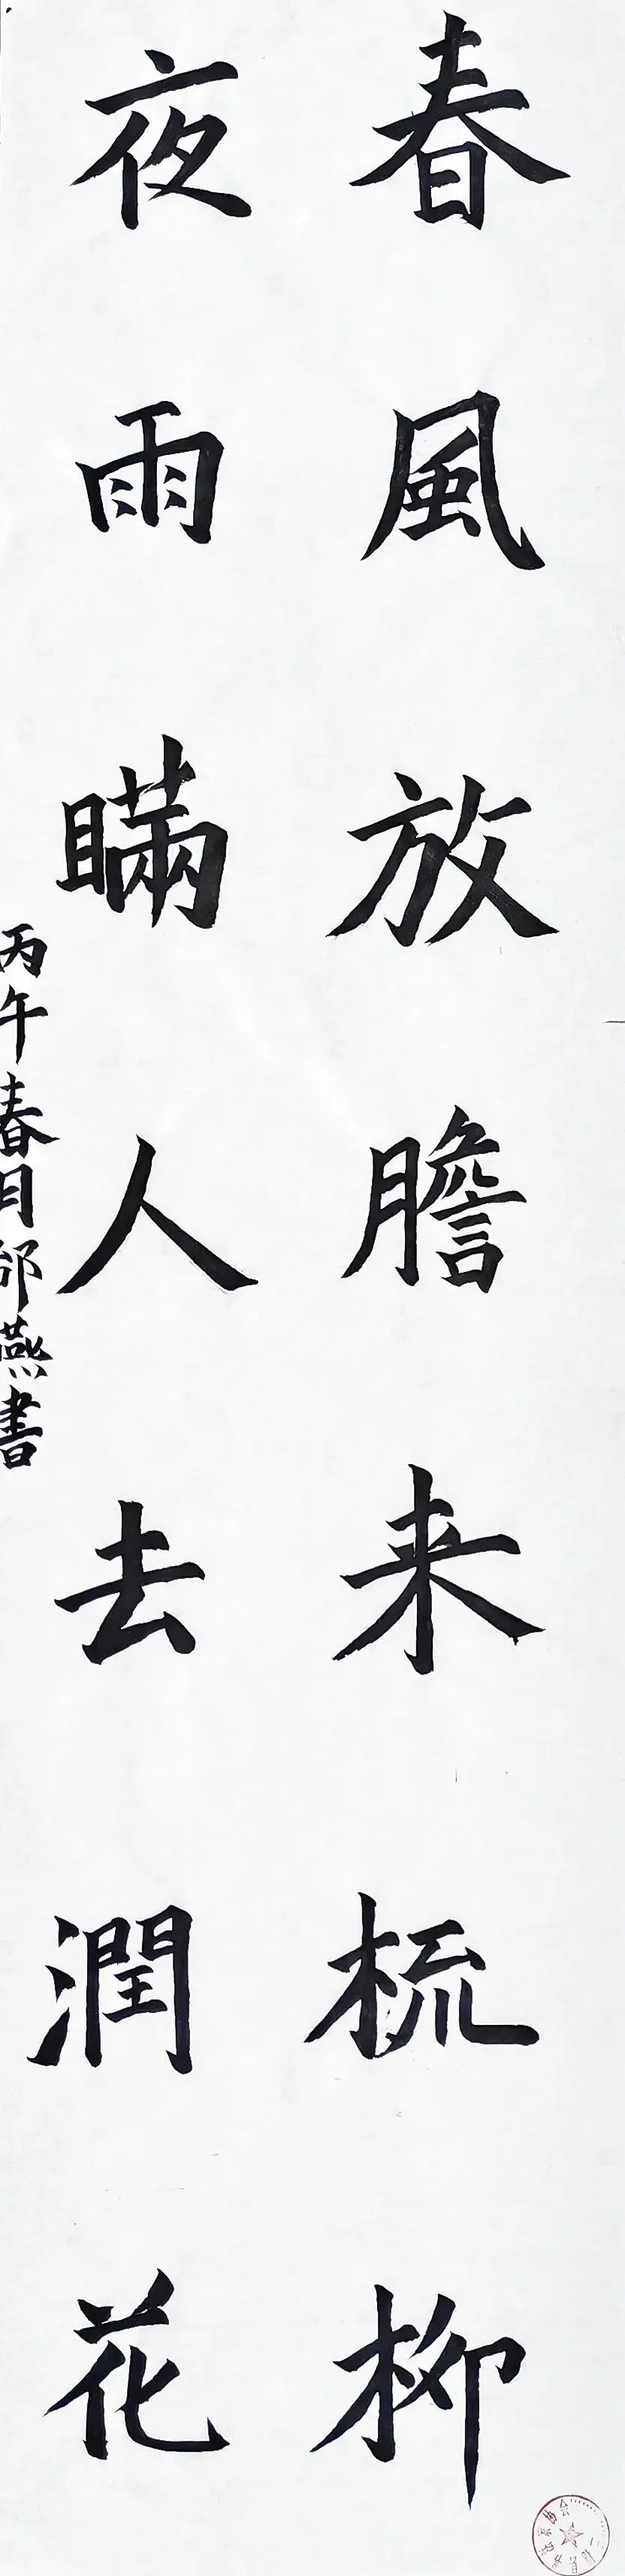 春風放膽来梳柳
夜雨瞞人去潤花
丙午春月邰燕書